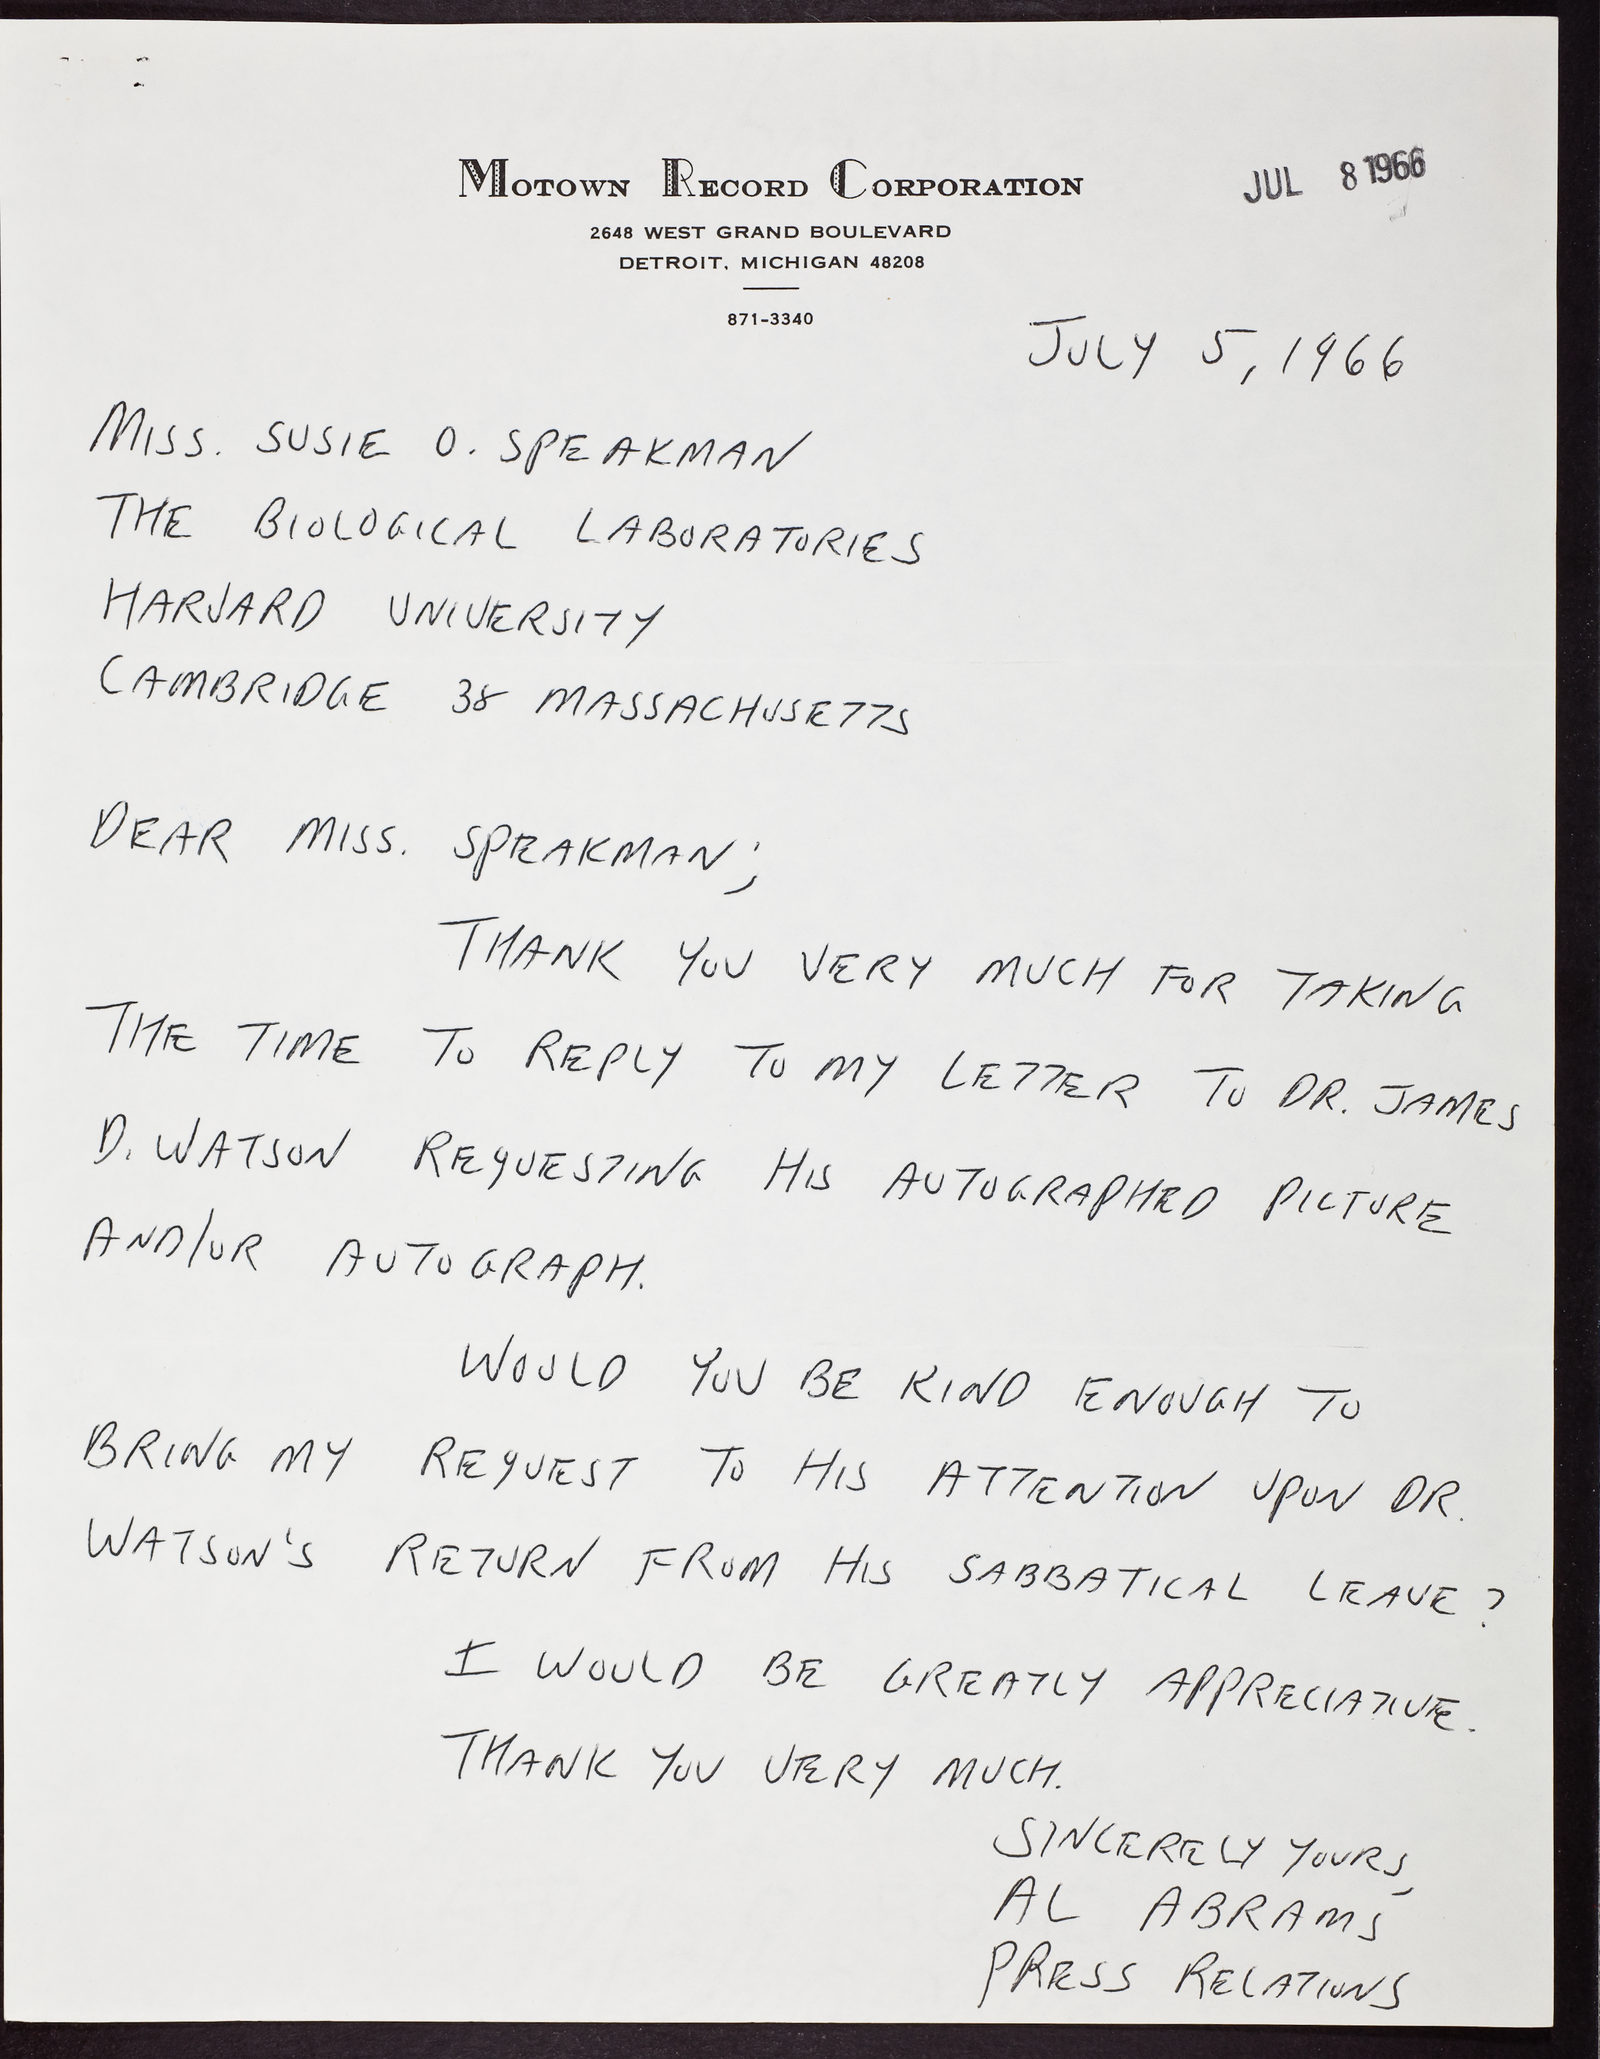 MOTOWN RECORD CORPORATION
JUL 8 1966
2648 WEST GRAND BOULEVARD
DETROIT, MICHIGAN 48208
871-3340
JULY 5, 1966
MISS. SUSIE O. SPEAKMAN
THE BIOLOGICAL LABORATORIES
HARVARD UNIVERSITY
CAMBRIDGE 38 MASSACHUSETTS
DEAR MISS. SPEAKMAN;
THANK YOU VERY MUCH FOR TAKING
THE TIME TO REPLY TO MY LETTER TO DR. JAMES
D. WATSON REQUESTING HIS AUTOGRAPHED PICTURE
AND/OR AUTOGRAPH.
WOULD YOU BE KIND ENOUGH TO
BRING MY REQUEST TO HIS ATTENTION UPON DR.
WATSON'S RETURN FROM HIS SABBATICAL LEAVE?
I WOULD BE GREATLY APPRECIATIVE.
THANK YOU VERY MUCH.
SINCERELY YOURS,
AL ABRAMS
PRESS RELATIONS